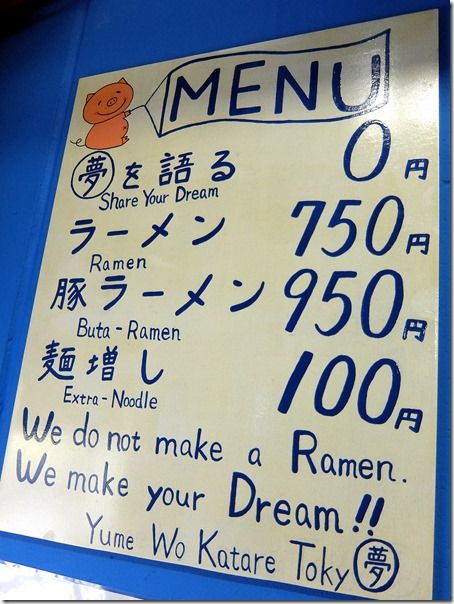 MENU
夢を語る 0円
Share Your Dream
ラーメン 750円
Ramen
豚ラーメン 950円
Buta-Ramen
麺増し 100円
Extra-Noodle
We do not make a Ramen.
We make your Dream!!
Yume Wo Katare Toky夢